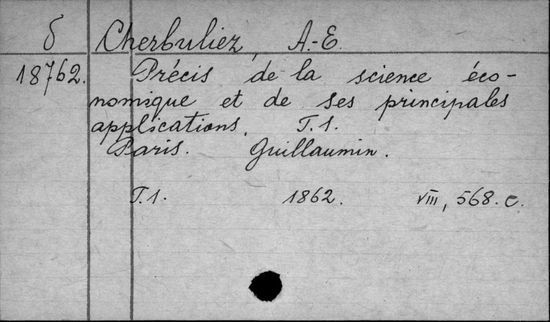 б Cherbuliez, A.-E.
18762. Précis de la science éco-
nomique et de ses principales
applications. T.1.
Paris. Guillaumin.
T.1. 1862. VIII, 568. c.